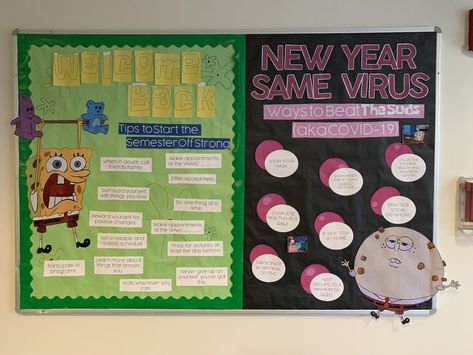 Welcome
Back
Tips to Start the
Semester Off Strong
When in doubt call
friends/family
Make appointments
at the VMASC
Offer/Accept help
Surround yourself
with things you love
Do one thing at a
time
Reward yourself for
positive changes
Make appointments
at the SHWC
Set a reasonable and
realistic schedule
Prep for lectures at
read the day before
Participate in
programs
Learn more about
things that amaze you
Walk wherever you
can
Never give up on
yourself, you've got
this
NEW YEAR
SAME VIRUS
Ways to Beat The Suds
(aka COVID-19)
WEAR YOUR
MASK
WASH HANDS
FOR AT LEAST
COMPLETE
HEALTHCHECK
DAILY
PRACTICE
SOCIAL
DISTANCING
IF SICK, STAY
AT HOME
PARTICIPATE
IN SENTINEL
TESTING
KEEP
GROUPS TO A
MINIMUM OF
EIGHT